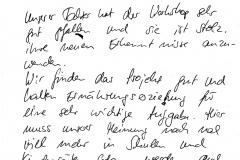 Unserer Tochter hat der Workshop sehr
gut gefallen und sie ist stolz,
ihre neuen Erkenntnisse anzu-
wenden.
Wir finden das Projekt gut und
halten Ernährungserziehung für
eine sehr wichtige Aufgabe. Hier
muss unserer Meinung nach noch
viel mehr in Schulen und